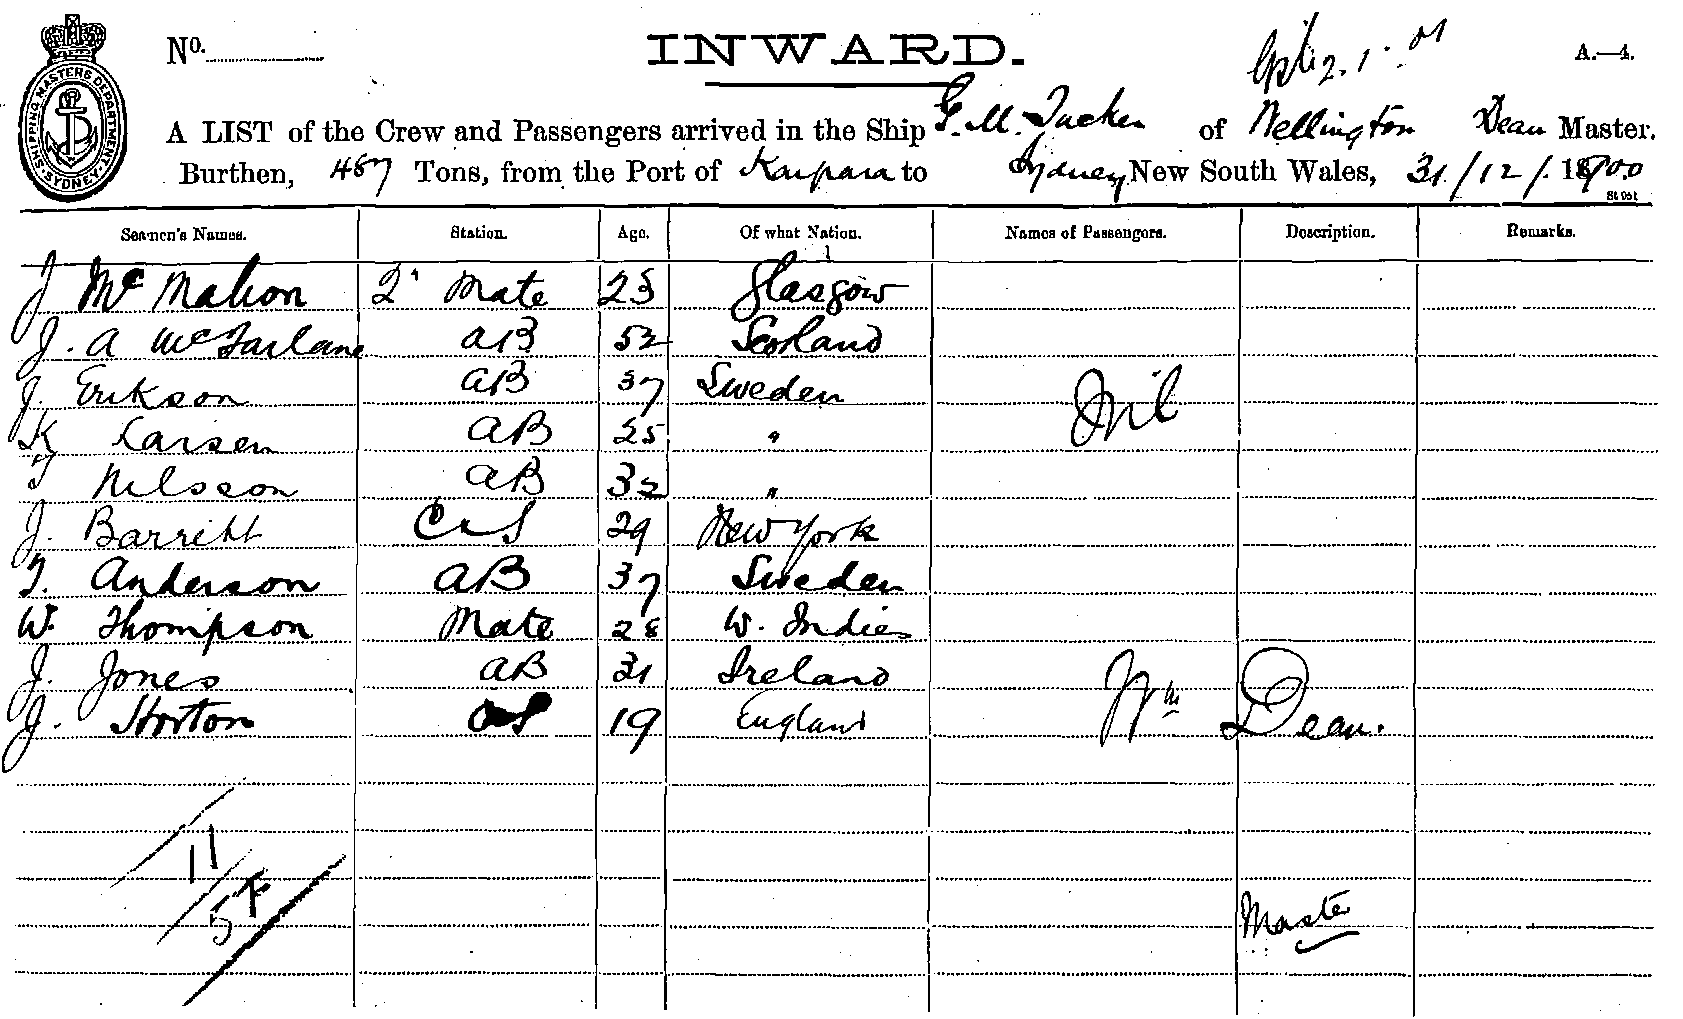 No. INWARD. A.—4.
SHIPPING MASTERS DEPARTMENT SYDNEY
A LIST of the Crew and Passengers arrived in the Ship G. M. Tucker of Wellington Dean Master.
Burthen, 487 Tons, from the Port of Kaipara to Sydney New South Wales, 31/12/1900
Seamen's Names. Station. Age. Of what Nation. Names of Passengers. Description. Remarks.
J McMahon 2' Mate 23 Glasgow
J. A McFarlane AB 52 Scotland
J. Erikson AB 37 Sweden Nil
K Larsen AB 25 "
T Nilsson AB 32 "
J. Barritt C & S 29 New York
T. Anderson AB 37 Sweden
W. Thompson Mate 28 W. Indies
J. Jones AB 31 Ireland
J. Horton OS 19 England Wm Dean.
11
5F
Master